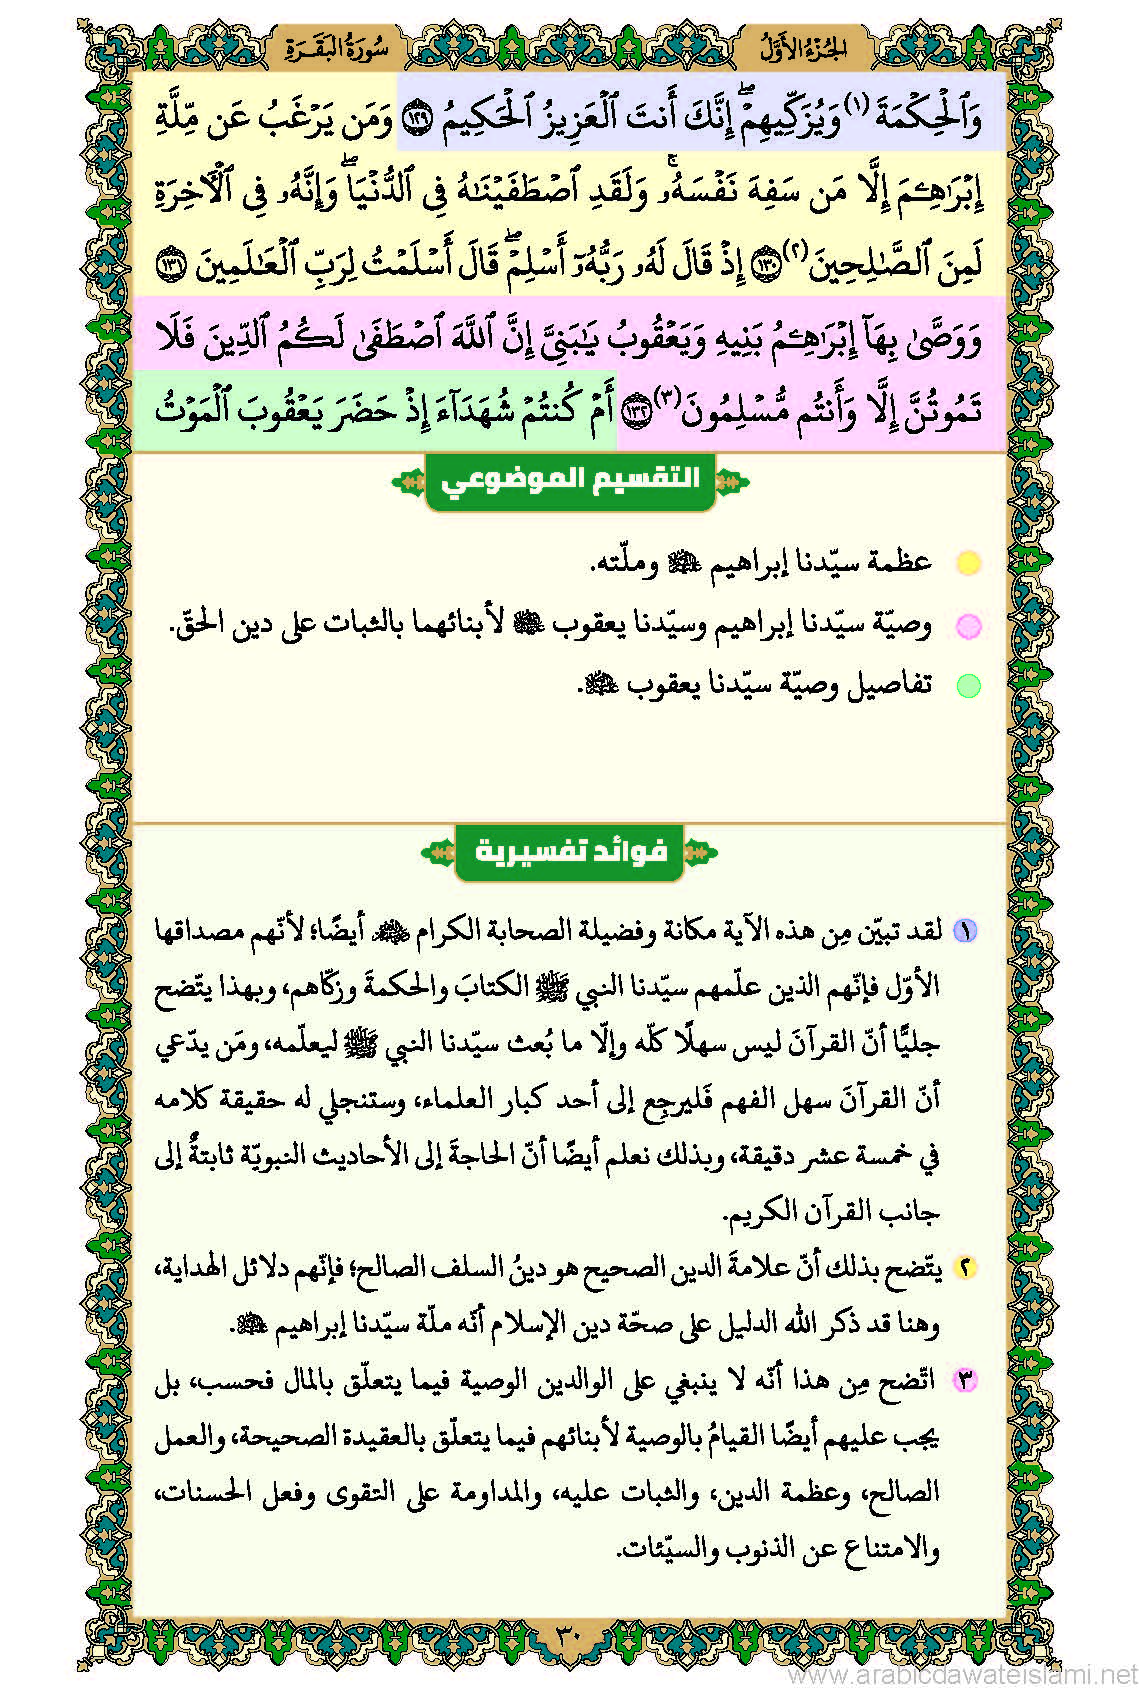 الجُزْءُ الأَوَّلُ
سُورَةُ البَقَرَةِ
وَٱلۡحِكۡمَةَ (١) وَيُزَكِّيهِمۡۖ إِنَّكَ أَنتَ ٱلۡعَزِيزُ ٱلۡحَكِيمُ ١٢٩ وَمَن يَرۡغَبُ عَن مِّلَّةِ
إِبۡرَٰهِـۧمَ إِلَّا مَن سَفِهَ نَفۡسَهُۥۚ وَلَقَدِ ٱصۡطَفَيۡنَٰهُ فِي ٱلدُّنۡيَاۖ وَإِنَّهُۥ فِي ٱلۡأٓخِرَةِ
لَمِنَ ٱلصَّٰلِحِينَ (٢) ١٣٠ إِذۡ قَالَ لَهُۥ رَبُّهُۥٓ أَسۡلِمۡۖ قَالَ أَسۡلَمۡتُ لِرَبِّ ٱلۡعَٰلَمِينَ ١٣١
وَوَصَّىٰ بِهَآ إِبۡرَٰهِـۧمُ بَنِيهِ وَيَعۡقُوبُ يَٰبَنِيَّ إِنَّ ٱللَّهَ ٱصۡطَفَىٰ لَكُمُ ٱلدِّينَ فَلَا
تَمُوتُنَّ إِلَّا وَأَنتُم مُّسۡلِمُونَ (٣) ١٣٢ أَمۡ كُنتُمۡ شُهَدَآءَ إِذۡ حَضَرَ يَعۡقُوبَ ٱلۡمَوۡتُ
التقسيم الموضوعي
عظمة سيّدنا إبراهيم ﵇ وملّته.
وصيّة سيّدنا إبراهيم وسيّدنا يعقوب ﵉ لأبنائهما بالثبات على دين الحقّ.
تفاصيل وصيّة سيّدنا يعقوب ﵇.
فوائد تفسيرية
١ لقد تبيّن مِن هذه الآية مكانة وفضيلة الصحابة الكرام ﵃ أيضًا؛ لأنّهم مصداقها
الأوّل فإنّهم الذين علّمهم سيّدنا النبي ﷺ الكتابَ والحكمةَ وزكّاهم، وبهذا يتّضح
جليًّا أنّ القرآنَ ليس سهلًا كلّه وإلّا ما بُعث سيّدنا النبي ﷺ ليعلّمه، ومَن يدّعي
أنّ القرآنَ سهل الفهم فَليرجِع إلى أحد كبار العلماء، وستنجلي له حقيقة كلامه
في خمسة عشر دقيقة، وبذلك نعلم أيضًا أنّ الحاجةَ إلى الأحاديث النبويّة ثابتةٌ إلى
جانب القرآن الكريم.
٢ يتّضح بذلك أنّ علامةَ الدين الصحيح هو دينُ السلف الصالح؛ فإنّهم دلائل الهداية،
وهنا قد ذكر الله الدليل على صحّة دين الإسلام أنّه ملّة سيّدنا إبراهيم ﵇.
٣ اتّضح مِن هذا أنّه لا ينبغي على الوالدين الوصية فيما يتعلّق بالمال فحسب، بل
يجب عليهم أيضًا القيامُ بالوصية لأبنائهم فيما يتعلّق بالعقيدة الصحيحة، والعمل
الصالح، وعظمة الدين، والثبات عليه، والمداومة على التقوى وفعل الحسنات،
والامتناع عن الذنوب والسيّئات.
٣٠
www.arabicdawateislami.net